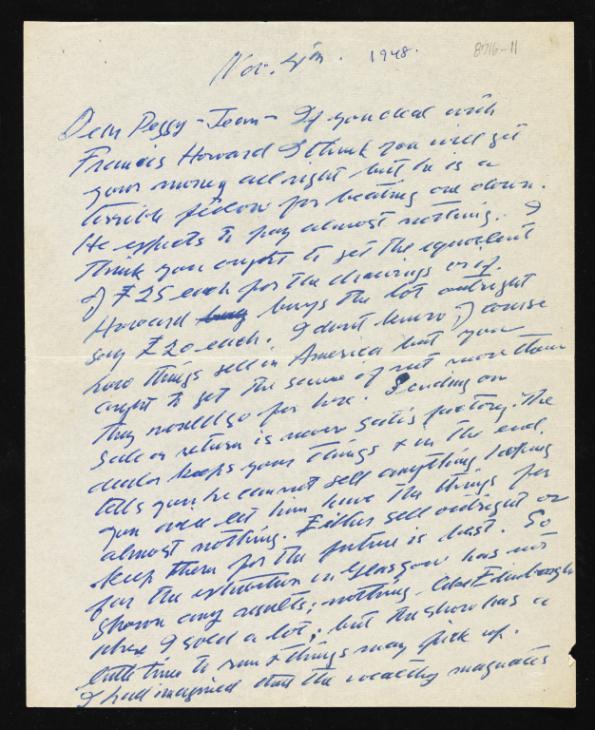 Nov. 4th. 1948. 8716-11
Dear Peggy-Jean - If you deal with
Francis Howard I think you will get
your money all right but he is a
terrible fellow for beating one down.
He expects to pay almost nothing. I
think you ought to get the equivalent
of £25 each for the drawings or if
Howard buys the lot outright
say £20 each. I don't know of course
how things sell in America but you
ought to get the same if not more than
they would go for here. Sending on
sale or return is never satisfactory. The
dealer keeps your things & in the end,
tells you he cannot sell anything hoping
you will let him have the things for
almost nothing. Either sell outright or
keep them for the future is best. So
far the exhibition in Glasgow has not
shown any results; nothing like Edinborough
where I sold a lot; but the show has a
little time to run & things may pick up.
I had imagined that the wealthy magnates